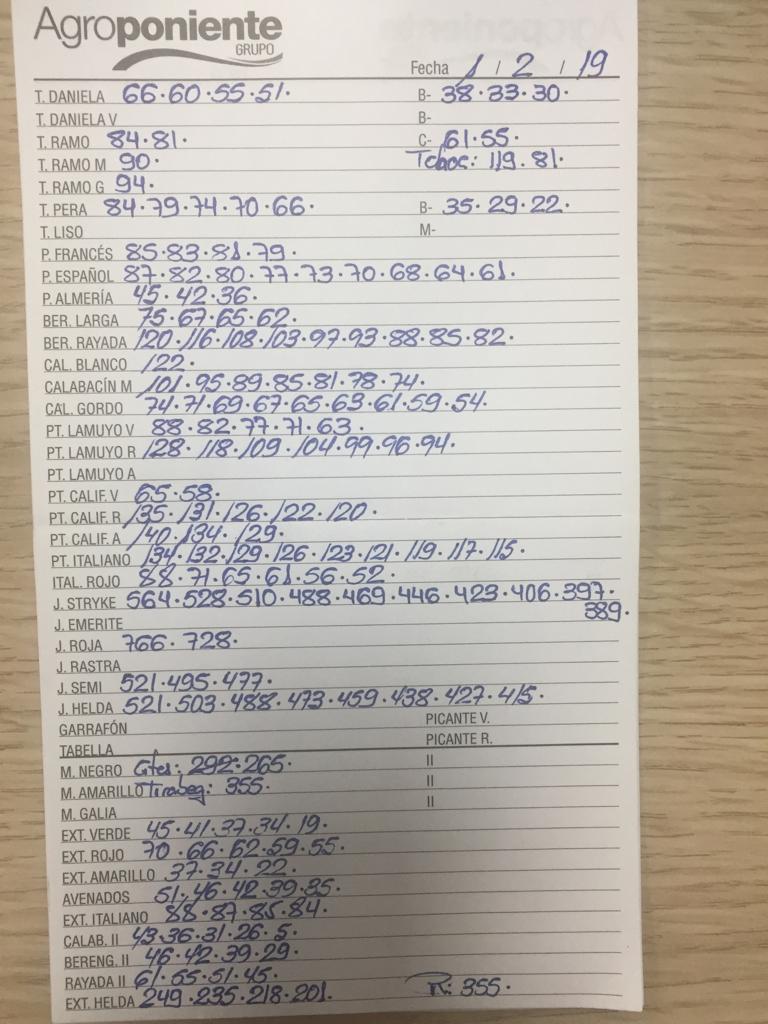 Agroponiente
GRUPO
Fecha 1 / 2 / 19
T. DANIELA 66·60·55·51· B- 38·33·30·
T. DANIELA V B-
T. RAMO 84·81· C- 61·55·
T. RAMO M 90· Tchoc: 119·81·
T. RAMO G 94·
T. PERA 84·79·74·70·66· B- 35·29·22·
T. LISO M-
P. FRANCÉS 85·83·81·79·
P. ESPAÑOL 87·82·80·77·73·70·68·64·61·
P. ALMERÍA 45·42·36·
BER. LARGA 75·67·65·62·
BER. RAYADA 120·116·108·103·97·93·88·85·82·
CAL. BLANCO 122·
CALABACÍN M 101·95·89·85·81·78·74·
CAL. GORDO 74·71·69·67·65·63·61·59·54·
PT. LAMUYO V 88·82·77·71·63·
PT. LAMUYO R 128·118·109·104·99·96·94·
PT. LAMUYO A
PT. CALIF. V 65·58·
PT. CALIF. R 135·131·126·122·120·
PT. CALIF. A 140·134·129·
PT. ITALIANO 134·132·129·126·123·121·119·117·115·
ITAL. ROJO 88·71·65·61·56·52·
J. STRYKE 564·528·510·488·469·446·423·406·397·
389·
J. EMERITE
J. ROJA 766·728·
J. RASTRA
J. SEMI 521·495·477·
J. HELDA 521·503·488·473·459·438·427·415·
GARRAFÓN PICANTE V.
TABELLA PICANTE R.
M. NEGRO 292·265· II
M. AMARILLO Tirabeg: 355· II
M. GALIA II
EXT. VERDE 45·41·37·34·19·
EXT. ROJO 70·66·62·59·55·
EXT. AMARILLO 37·34·22·
AVENADOS 51·46·42·39·35·
EXT. ITALIANO 88·87·85·84·
CALAB. II 43·36·31·26·5·
BERENG. II 46·42·39·29·
RAYADA II 61·55·51·45·
EXT. HELDA 249·235·218·201· R: 355·